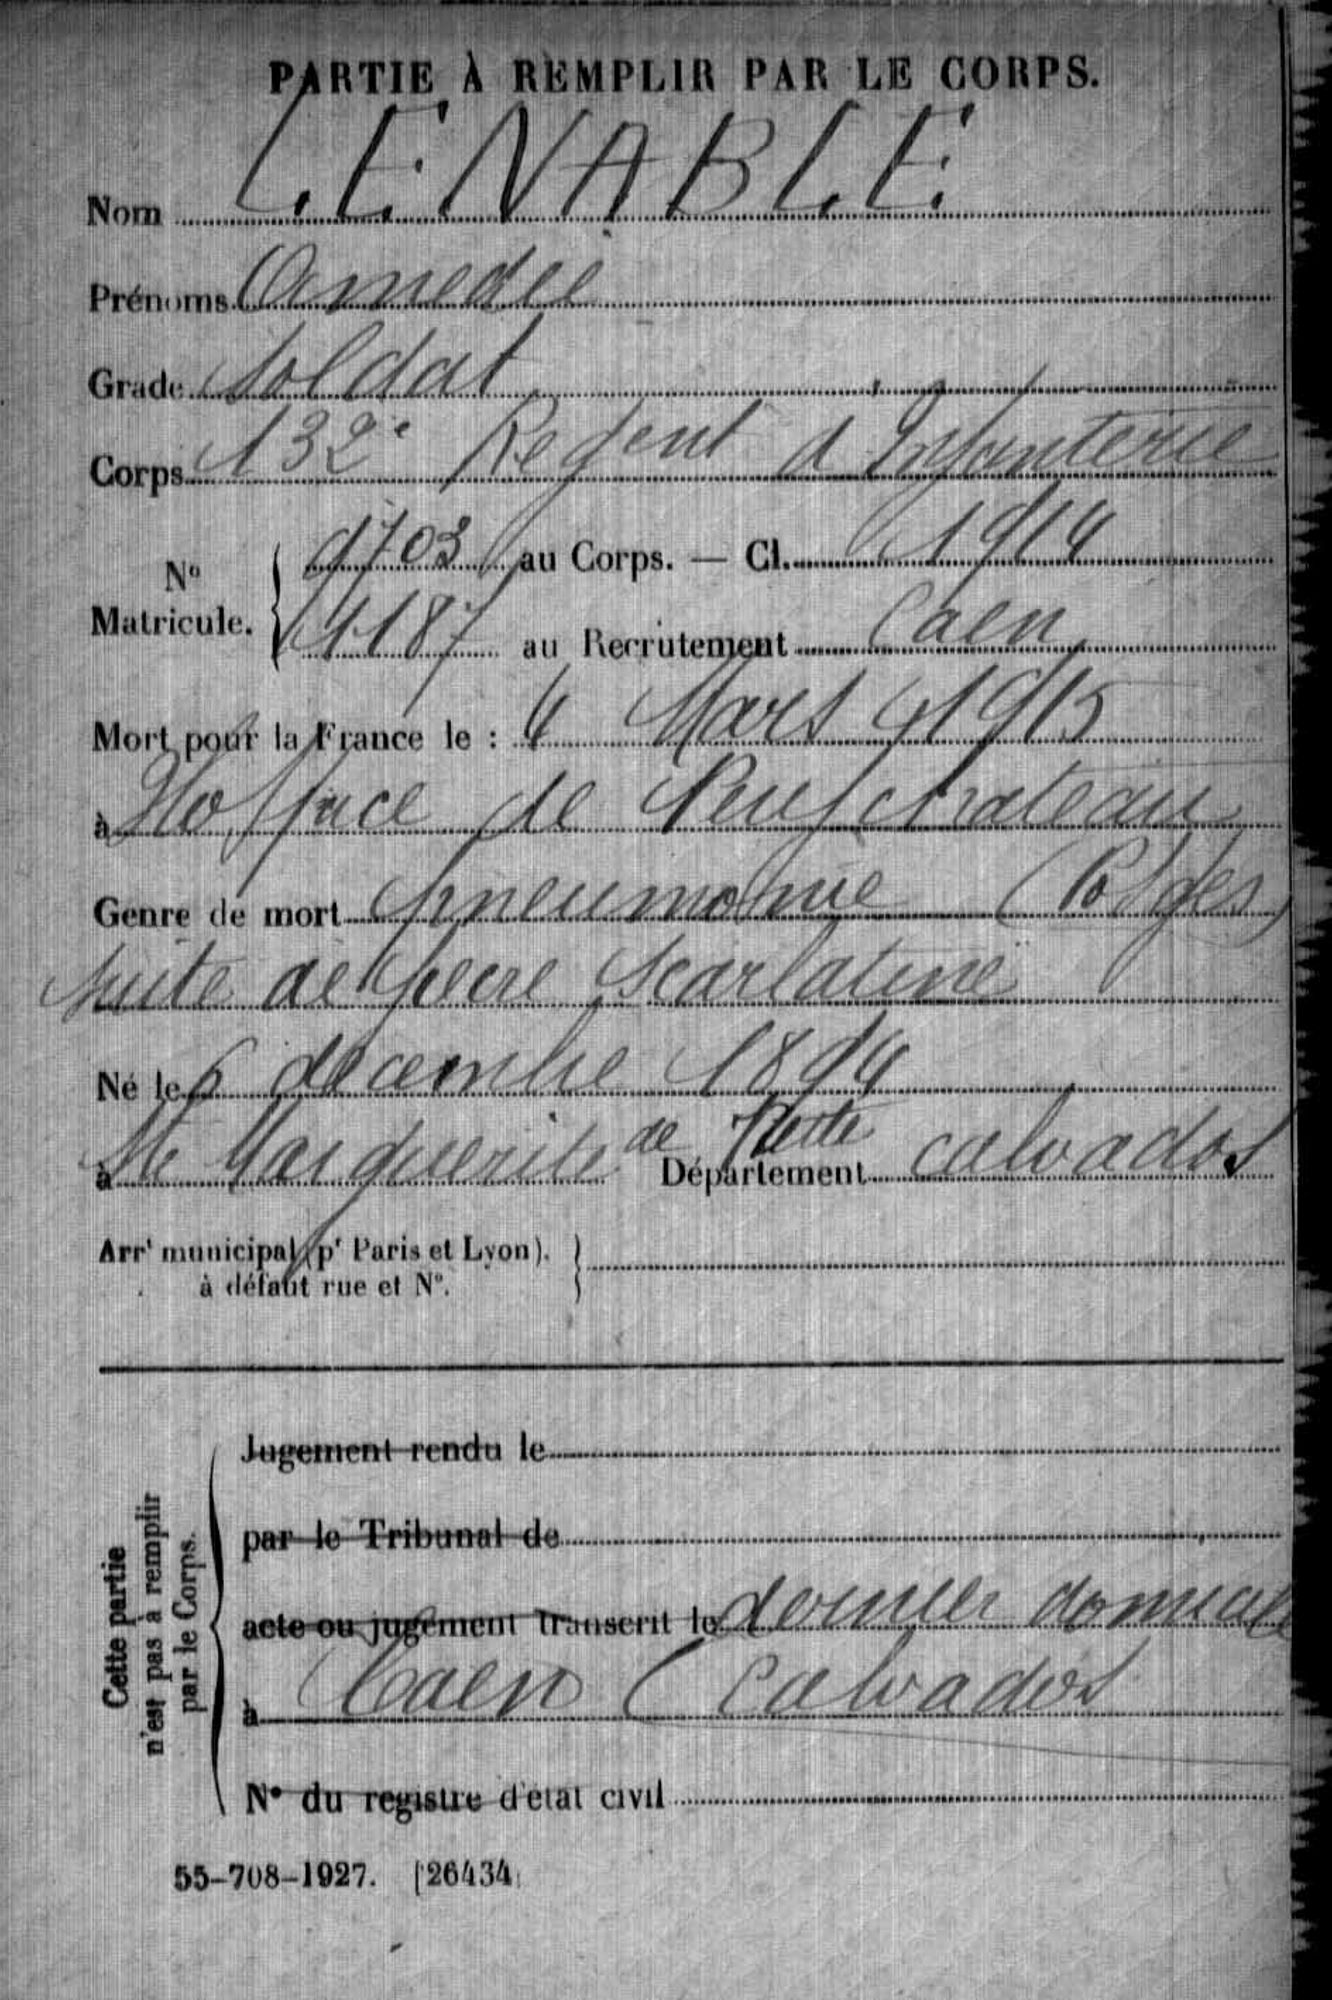 PARTIE À REMPLIR PAR LE CORPS.
Nom LENABLE
Prénoms Amedée
Grade Soldat
Corps 132e Regent d'Infanterie
No Matricule. 9703 au Corps. — Cl. 1914
1187 au Recrutement Caen
Mort pour la France le : 4 Mars 1915
à Hospice de Neufchateau
Genre de mort pneumonie (Vosges)
suite de fievre scarlatine
Né le 6 décembre 1894
à Ste Marguerite de Viette Département calvados
Arrt municipal (pr Paris et Lyon).
à défaut rue et No.
Cette partie
n'est pas à remplir
par le Corps.
Jugement rendu le
par le Tribunal de
acte ou jugement transcrit le dernier domicile
à Caen (Calvados
No du registre d'état civil
55-708-1927. [26434